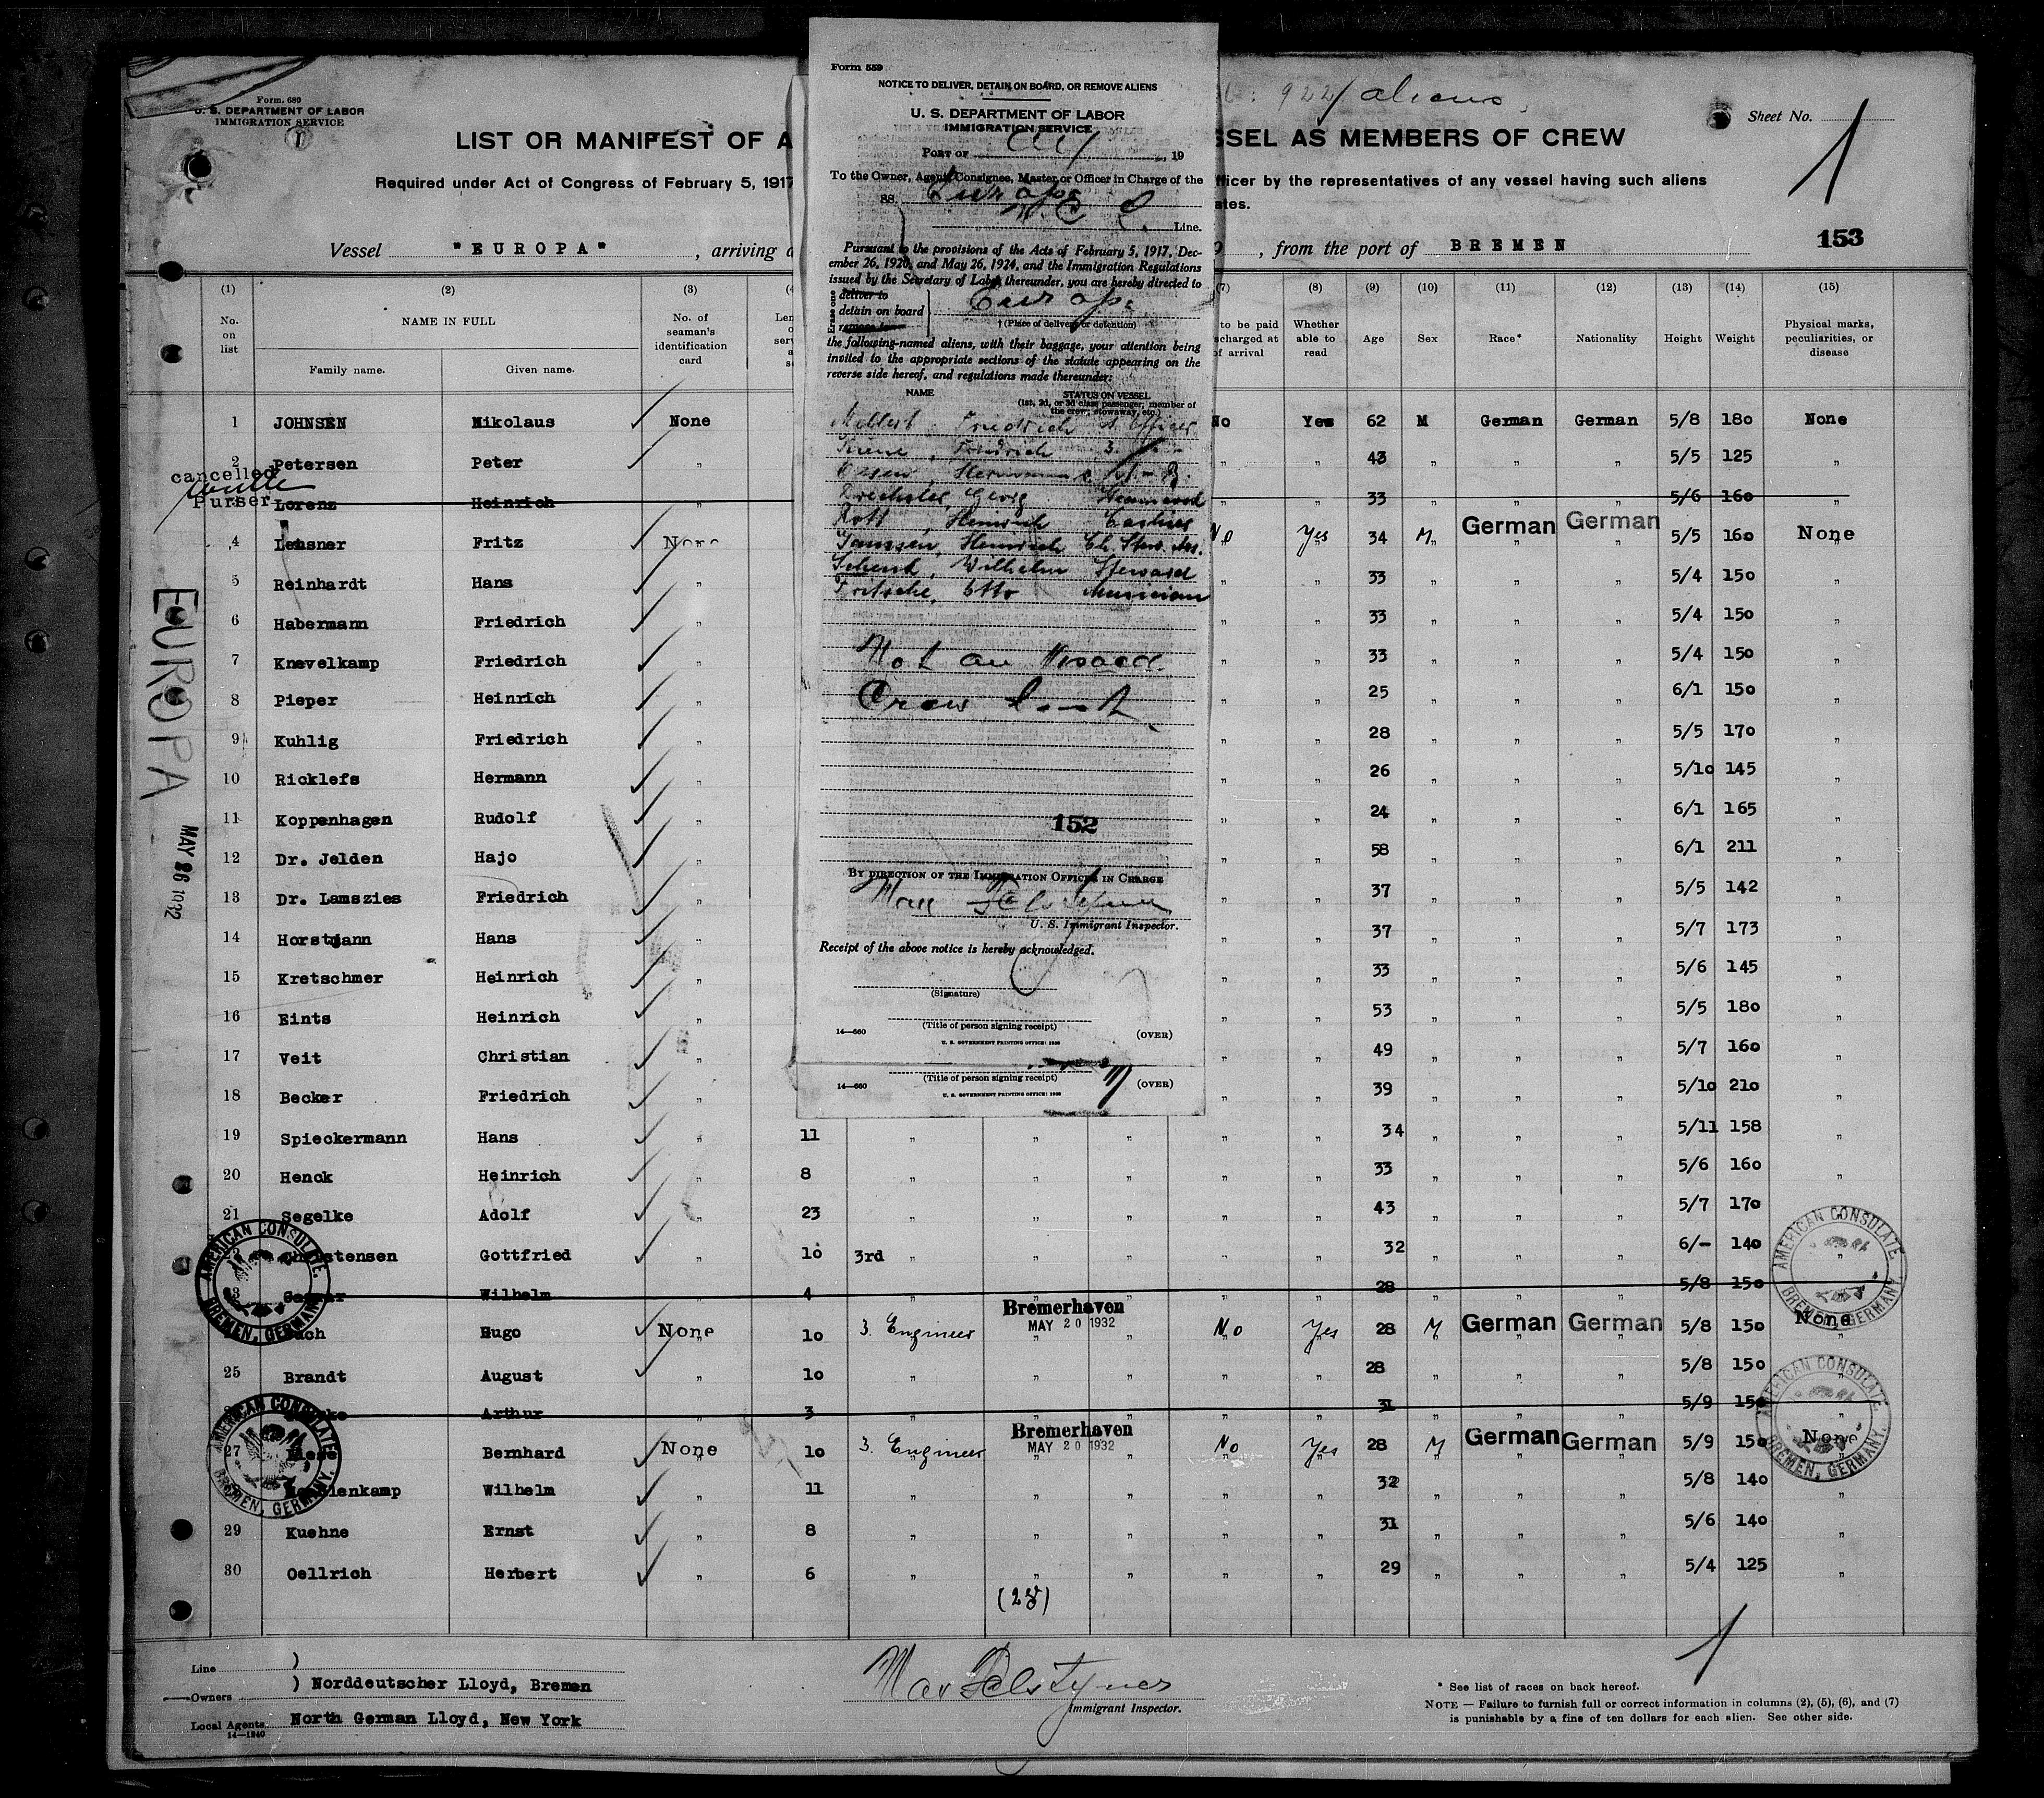 Form. 689
U. S. DEPARTMENT OF LABOR
IMMIGRATION SERVICE
LIST OR MANIFEST OF A
SSEL AS MEMBERS OF CREW
922 aliens
Sheet No. 1
Required under Act of Congress of February 5, 1917
fficer by the representatives of any vessel having such aliens
ates.
Vessel "EUROPA", arriving a
, from the port of BREMEN
153
Form 559
NOTICE TO DELIVER, DETAIN ON BOARD, OR REMOVE ALIENS
U. S. DEPARTMENT OF LABOR
IMMIGRATION SERVICE
PORT OF , 19
To the Owner, Agent, Consignee, Master, or Officer in Charge of the
SS. Europa
Line.
Pursuant to the provisions of the Acts of February 5, 1917, Dec-
ember 26, 1920, and May 26, 1924, and the Immigration Regulations
issued by the Secretary of Labor thereunder, you are hereby directed to
Erase one
deliver to
detain on board
Europa
† (Place of delivery or detention)
the following-named aliens, with their baggage, your attention being
invited to the appropriate sections of the statute appearing on the
reverse side hereof, and regulations made thereunder:
NAME
STATUS ON VESSEL
(1st, 2d, or 3d class passenger, member of
the crew, stowaway, etc.)
Friedrich Officer
Friedrich 3.
Hermann
Georg
Rott, Heinrich
Janssen, Heinrich Ch. Stew.
Schenk, Wilhelm Steward
Fritsche, Otto Musician
Not on Board
Crew
152
BY DIRECTION OF THE IMMIGRATION OFFICER IN CHARGE
U. S. Immigrant Inspector.
Receipt of the above notice is hereby acknowledged.
(Signature)
(Title of person signing receipt)
14—660
(OVER)
U. S. GOVERNMENT PRINTING OFFICE: 1930
(Title of person signing receipt)
14—660
(OVER)
U. S. GOVERNMENT PRINTING OFFICE: 1930
(1) (2) (3) (4 (7) (8) (9) (10) (11) (12) (13) (14) (15)
No. on list
NAME IN FULL
Family name. Given name.
No. of seaman's identification card
to be paid
scharged at
of arrival
Whether able to read
Age Sex Race* Nationality Height Weight
Physical marks, peculiarities, or disease
1 JOHNSEN Nikolaus None No Yes 62 M German German 5/8 180 None
2 Petersen Peter " " " 43 " " " 5/5 125 "
cancelled
Purser
Lorenz Heinrich " 33 " " " 5/6 160 "
4 Leusner Fritz None No Yes 34 M German German 5/5 160 None
5 Reinhardt Hans " " " 33 " " " 5/4 150 "
6 Habermann Friedrich " " " 33 " " " 5/4 150 "
7 Knevelkamp Friedrich " " " 33 " " " 5/4 150 "
8 Pieper Heinrich " " " 25 " " " 6/1 150 "
9 Kuhlig Friedrich " " " 28 " " " 5/5 170 "
10 Ricklefs Hermann " " " 26 " " " 5/10 145 "
11 Koppenhagen Rudolf " " " 24 " " " 6/1 165 "
12 Dr. Jelden Hajo " " " 58 " " " 6/1 211 "
13 Dr. Lamszies Friedrich " " " 37 " " " 5/5 142 "
14 Horstmann Hans " " " 37 " " " 5/7 173 "
15 Kretschmer Heinrich " " " 33 " " " 5/6 145 "
16 Eints Heinrich " " " 53 " " " 5/5 180 "
17 Veit Christian " " " 49 " " " 5/7 160 "
18 Becker Friedrich " " " 39 " " " 5/10 210 "
19 Spieckermann Hans " 11 " " " " " 34 " " " 5/11 158 "
20 Henck Heinrich " 8 " " " " " 33 " " " 5/6 160 "
21 Segelke Adolf " 23 " " " " " 43 " " " 5/7 170 "
Christensen Gottfried " 10 3rd " " " " " 32 " " " 6/- 140 "
Wilhelm " 4 " " " " " 28 " " " 5/8 150
Hugo None 10 3. Engineer Bremerhaven MAY 20 1932 " No Yes 28 M German German 5/8 150 None
25 Brandt August " 10 " " " " " 28 " " " 5/8 150
Arthur " 3 " " " " " 31 " " " 5/9 150 "
27 Bernhard None 10 3. Engineer Bremerhaven MAY 20 1932 " No Yes 28 M German German 5/9 150 None
Wilhelm " 11 " " " " " 32 " " " 5/8 140 "
29 Kuehne Ernst " 8 " " " " " 31 " " " 5/6 140 "
30 Oellrich Herbert " 6 " " " " " 29 " " " 5/4 125 "
EUROPA
MAY 26 1932
AMERICAN CONSULATE.
BREMEN, GERMANY.
AMERICAN CONSULATE.
BREMEN, GERMANY.
AMERICAN CONSULATE
BREMEN, GERMANY.
AMERICAN CONSULATE.
BREMEN, GERMANY.
Line )
Owners ) Norddeutscher Lloyd, Bremen
Local Agents North German Lloyd, New York
14—1240
Immigrant Inspector.
* See list of races on back hereof.
NOTE — Failure to furnish full or correct information in columns (2), (5), (6), and (7)
is punishable by a fine of ten dollars for each alien. See other side.